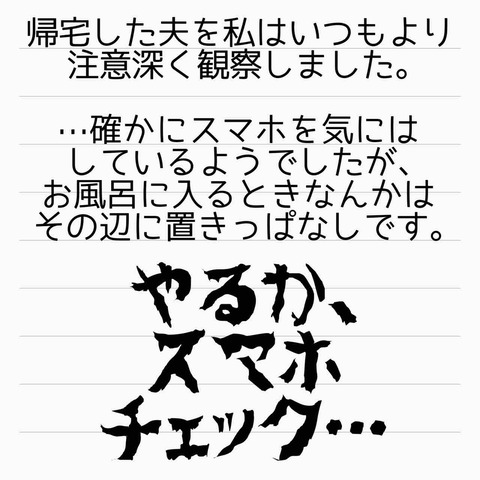 帰宅した夫を私はいつもより
注意深く観察しました。
…確かにスマホを気には
しているようでしたが、
お風呂に入るときなんかは
その辺に置きっぱなしです。
やるか、
スマホ
チェック…